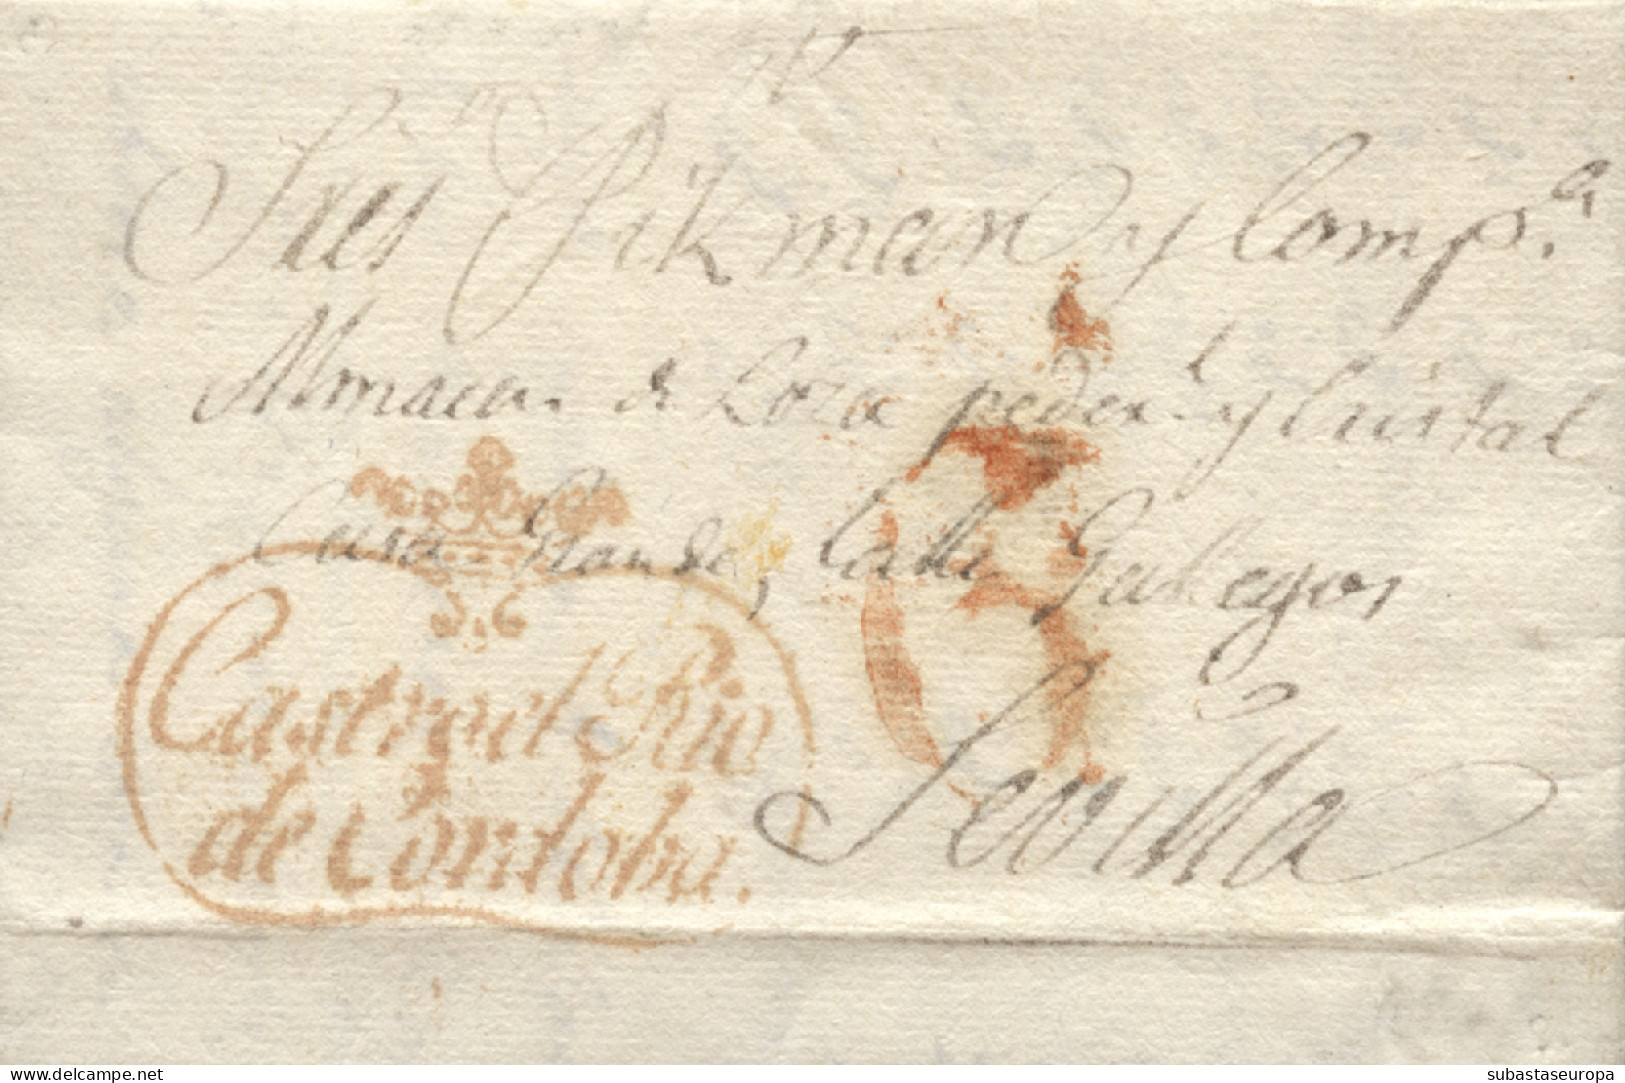 Sres Pikman y Comp.ª
Almacen de Loza peder.l y Cristal
Casa Grande, Calle Gallegos
Sevilla
6
Castro del Rio
de Cordoba.
www.delcampe.net
subastaseuropa